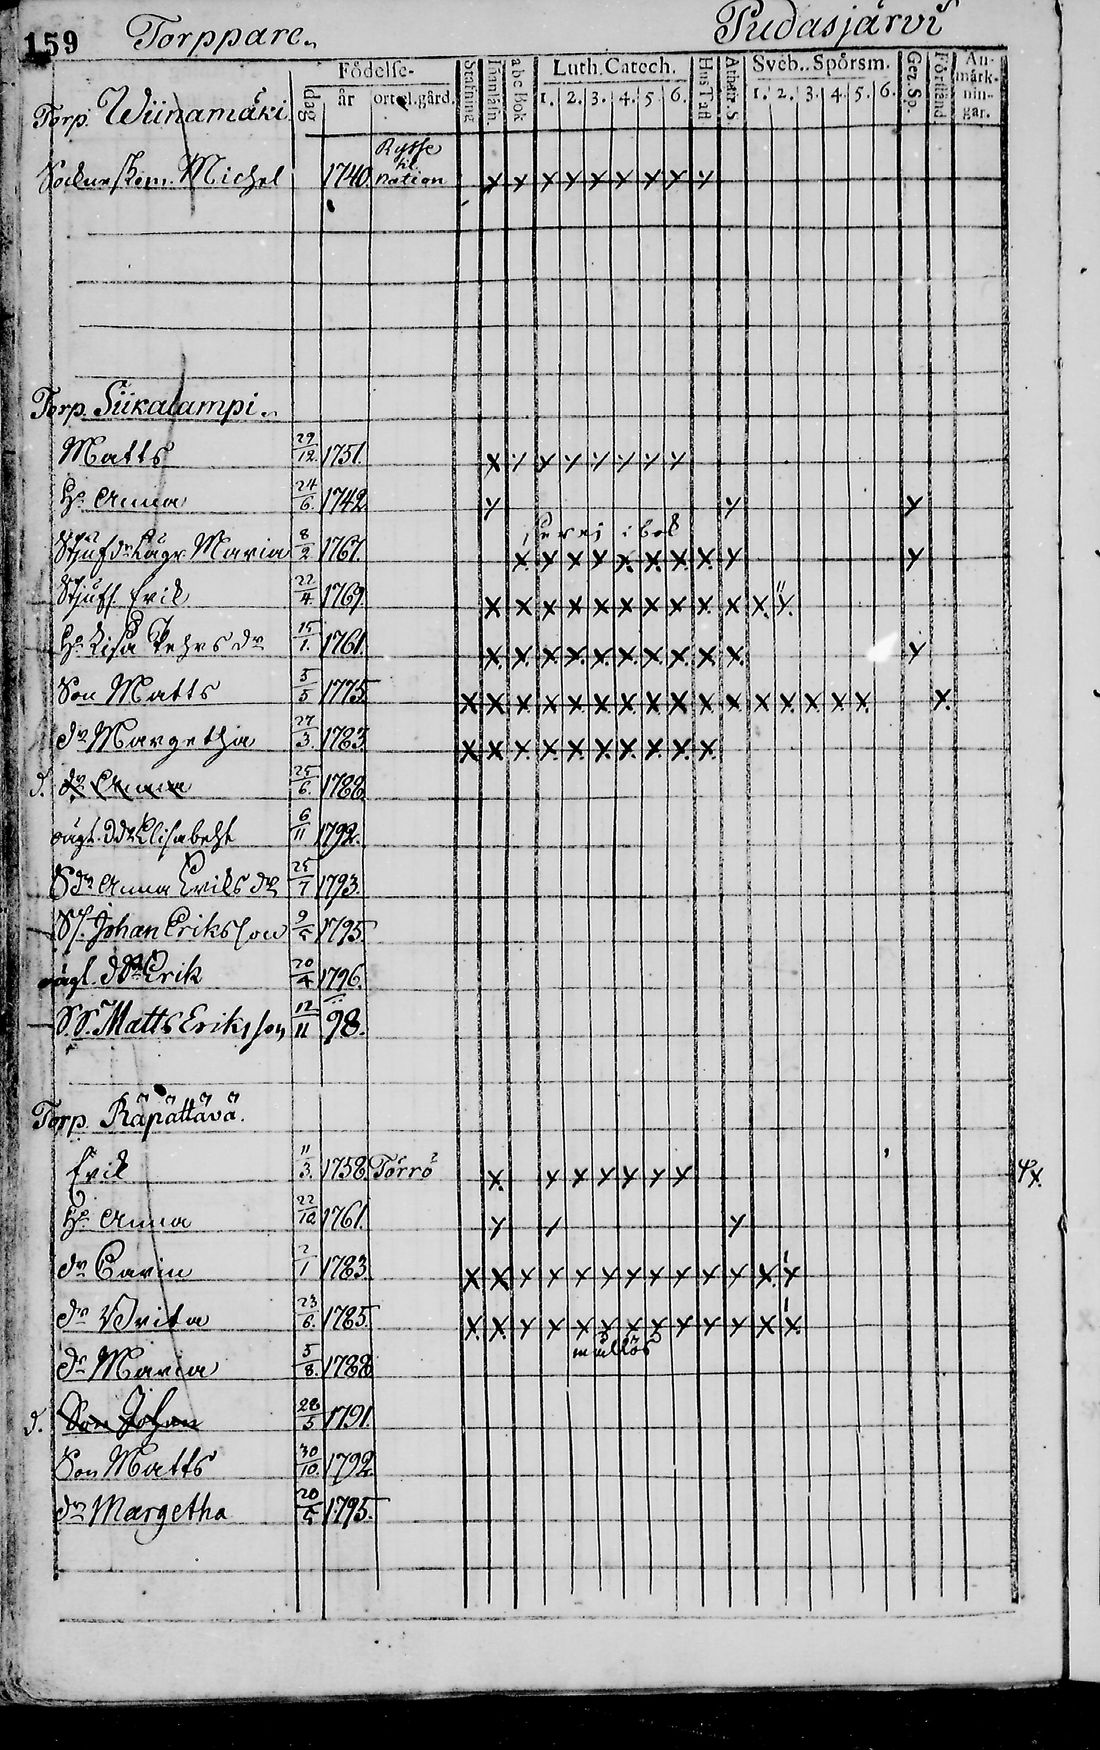 159 Torppare. Pudasjärvi
Födelse- dag år ort el. gård. Stafning Innanläsn. abc Bok Luth. Catech. 1. 2. 3. 4. 5. 6. Hus Tafl. Athan. S. Sveb. Spörsm. 1. 2. 3. 4. 5. 6. Gez. Sp. Förstånd An-märk-nin-gar.
Torp. Wiinamäki
Ryffe
til
Michel 1740 nation x x x x x x x x x
Torp. Siikalampi.
Matts 29/12 1751. x x x x x x x x
H:u Anna 24/6 1742 x x x
i bok
Maria 8/2 1767. x x x x x x x x x x
Erik 22/4 1769 x x x x x x x x x x x x
H:u Lisa Pehrs dr 15/1 1761. x x x x x x x x x x x
Son Matts 5/5 1775. x x x x x x x x x x x x x x x x x
dr Margetha 27/3 1783. x x x x x x x x x x
d. dr Anna 25/6 1788
Elisabeht 6/11 1792.
S dr Anna Eriks dr 25/7 1793.
S S. Johan Eriksson 9/5 1795
Erik 20/4 1796.
S. S. Matts Eriksson 12/11 98.
Torp. Räpättävä.
Erik 11/3 1758 Törrö x x x x x x x 4x.
H:u Anna 22/10 1761. x x x
dr Carin 2/1 1783 x x x x x x x x x x x x x
dr Brita 23/6 1785. x x x x x x x x x x x x x
mållös
dr Maria 5/8 1788
d. Son Johan 28/5 1791.
Son Matts 30/10 1792
dr Margetha 20/5 1795.